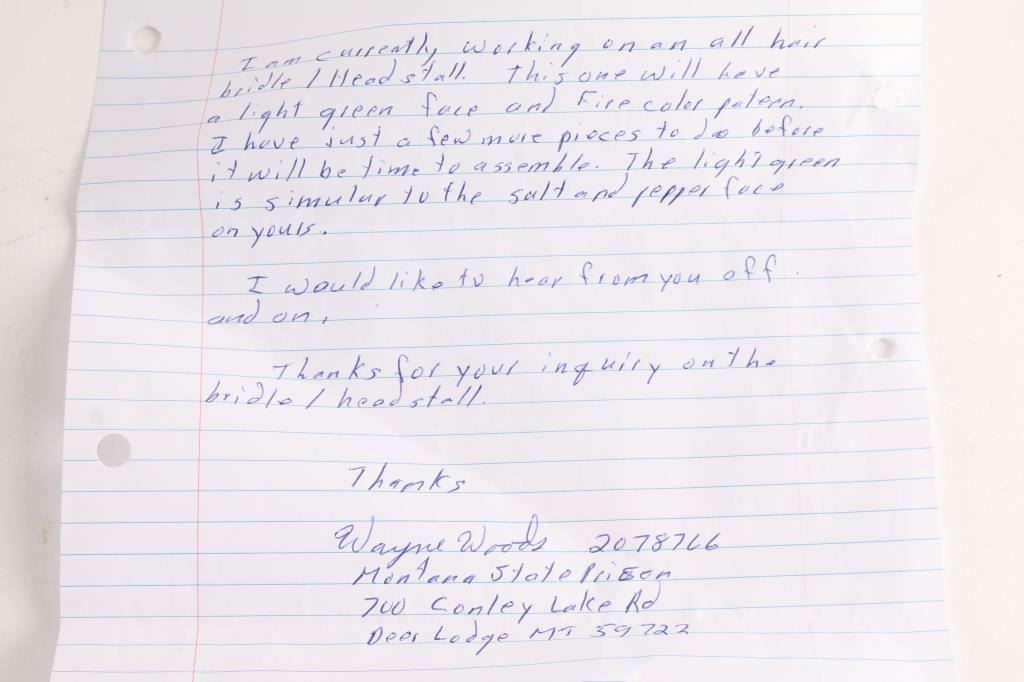 I am currently working on an all hair
bridle / Head stall. This one will have
a light green face and Fire color patern.
I have just a few more pieces to do before
it will be time to assemble. The light green
is simular to the salt and pepper face
on yours.
I would like to hear from you off
and on.
Thanks for your inquiry on the
bridle / head stall.
Thanks
Wayne Woods 2078766
Montana State Prison
700 Conley Lake Rd
Deer Lodge MT 59722